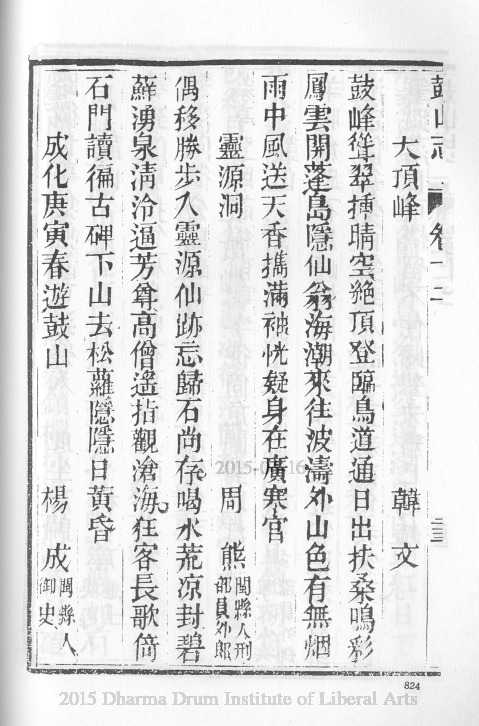 鼓山志 卷十二 三三
大頂峰 韓文
鼓峰聳翠摶晴空絶頂登臨鳥道通日出扶桑鳴彩
鳳雲開蓬島隱仙翁海潮來往波濤外山色有無烟
雨中風送天香擕滿袖恍疑身在廣寒宮
靈源洞 周熊 閩縣人刑部員外郎
偶移勝步入靈源仙跡忘歸石尚存喝水荒凉封碧
蘚湧泉淸泠逼芳尊高僧遙指觀滄海狂客長歌倚
石門讀徧古碑下山去松蘿隱隱日黃昏
成化庚寅春遊鼓山 楊成 閩縣人御史
824
2015 Dharma Drum Institute of Liberal Arts